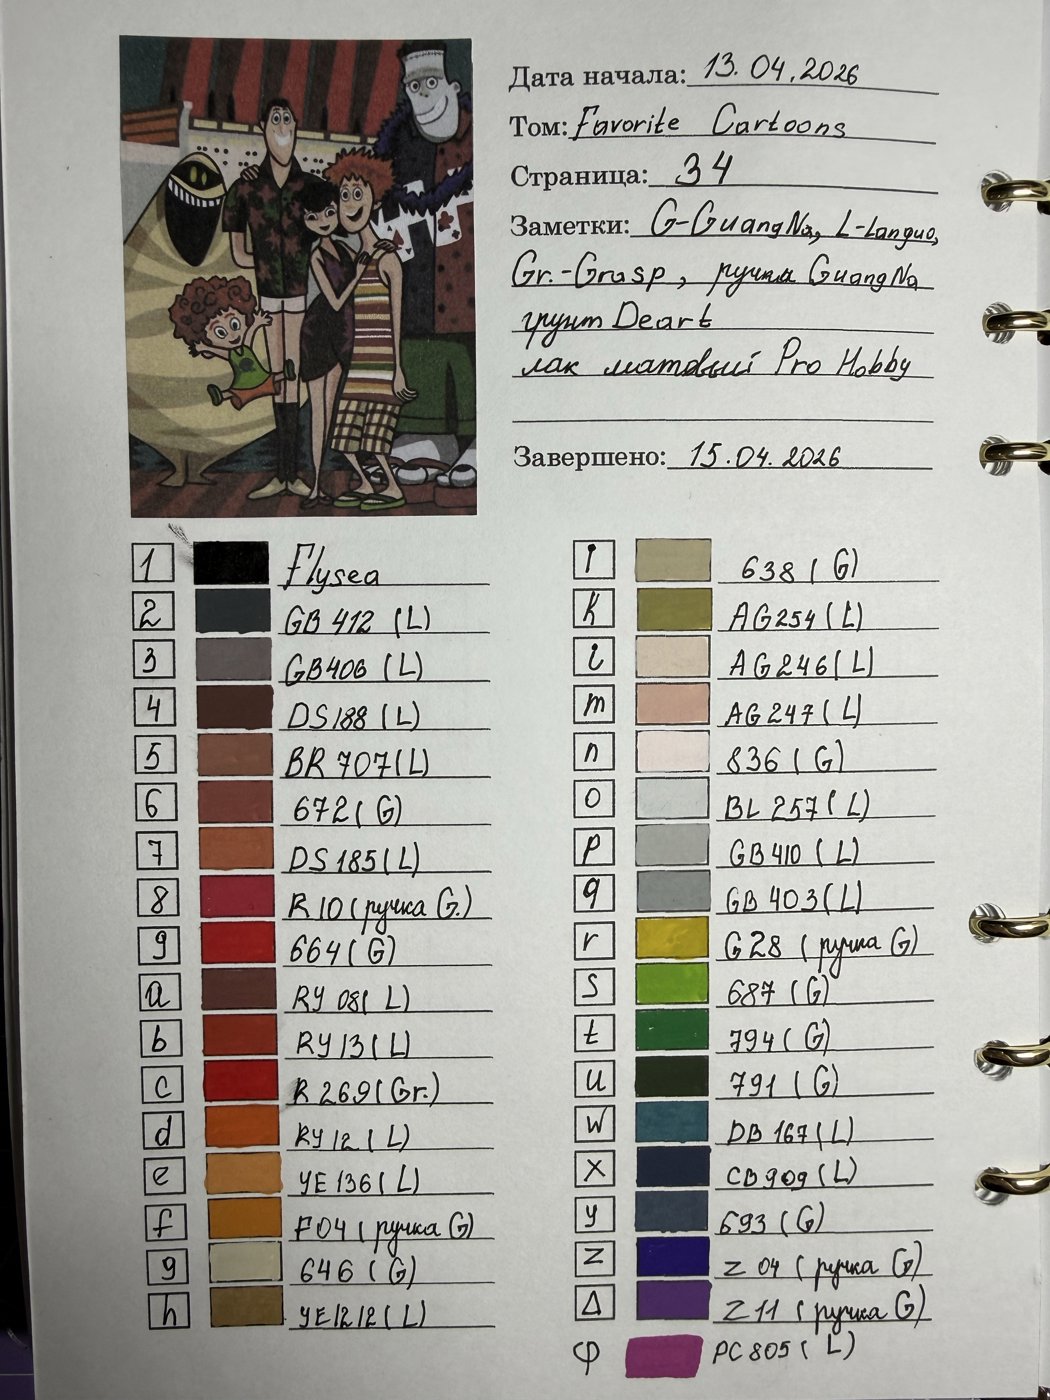 Дата начала: 13.04.2026
Том: Favorite Cartoons
Страница: 34
Заметки: G-GuangNa, L-Languo,
Gr.-Grasp, ручка GuangNa
грунт Deart
лак матовый Pro Hobby
Завершено: 15.04.2026
1 Flysea
2 GB 412 (L)
3 GB406 (L)
4 DS188 (L)
5 BR 707(L)
6 672 (G)
7 DS185(L)
8 R10 (ручка G.)
9 664 (G)
a RY 08( L)
b RY13 ( L)
c R 269(Gr.)
d RY12 (L)
e YE136 (L)
f F04 (ручка G)
g 646 (G)
h YE1212(L)
i 638 ( G)
k AG254 (L)
l AG246(L)
m AG247( L)
n 836 ( G)
o BL 257( L)
p GB410 ( L)
q GB 403(L)
r G28 ( ручка G)
s 687 (G)
t 794 ( G)
u 791 ( G)
w DB 167( L)
x CB909 (L)
y 693 ( G)
z Z 04 ( ручка G)
Δ Z11 ( ручка G)
φ PC805 ( L)